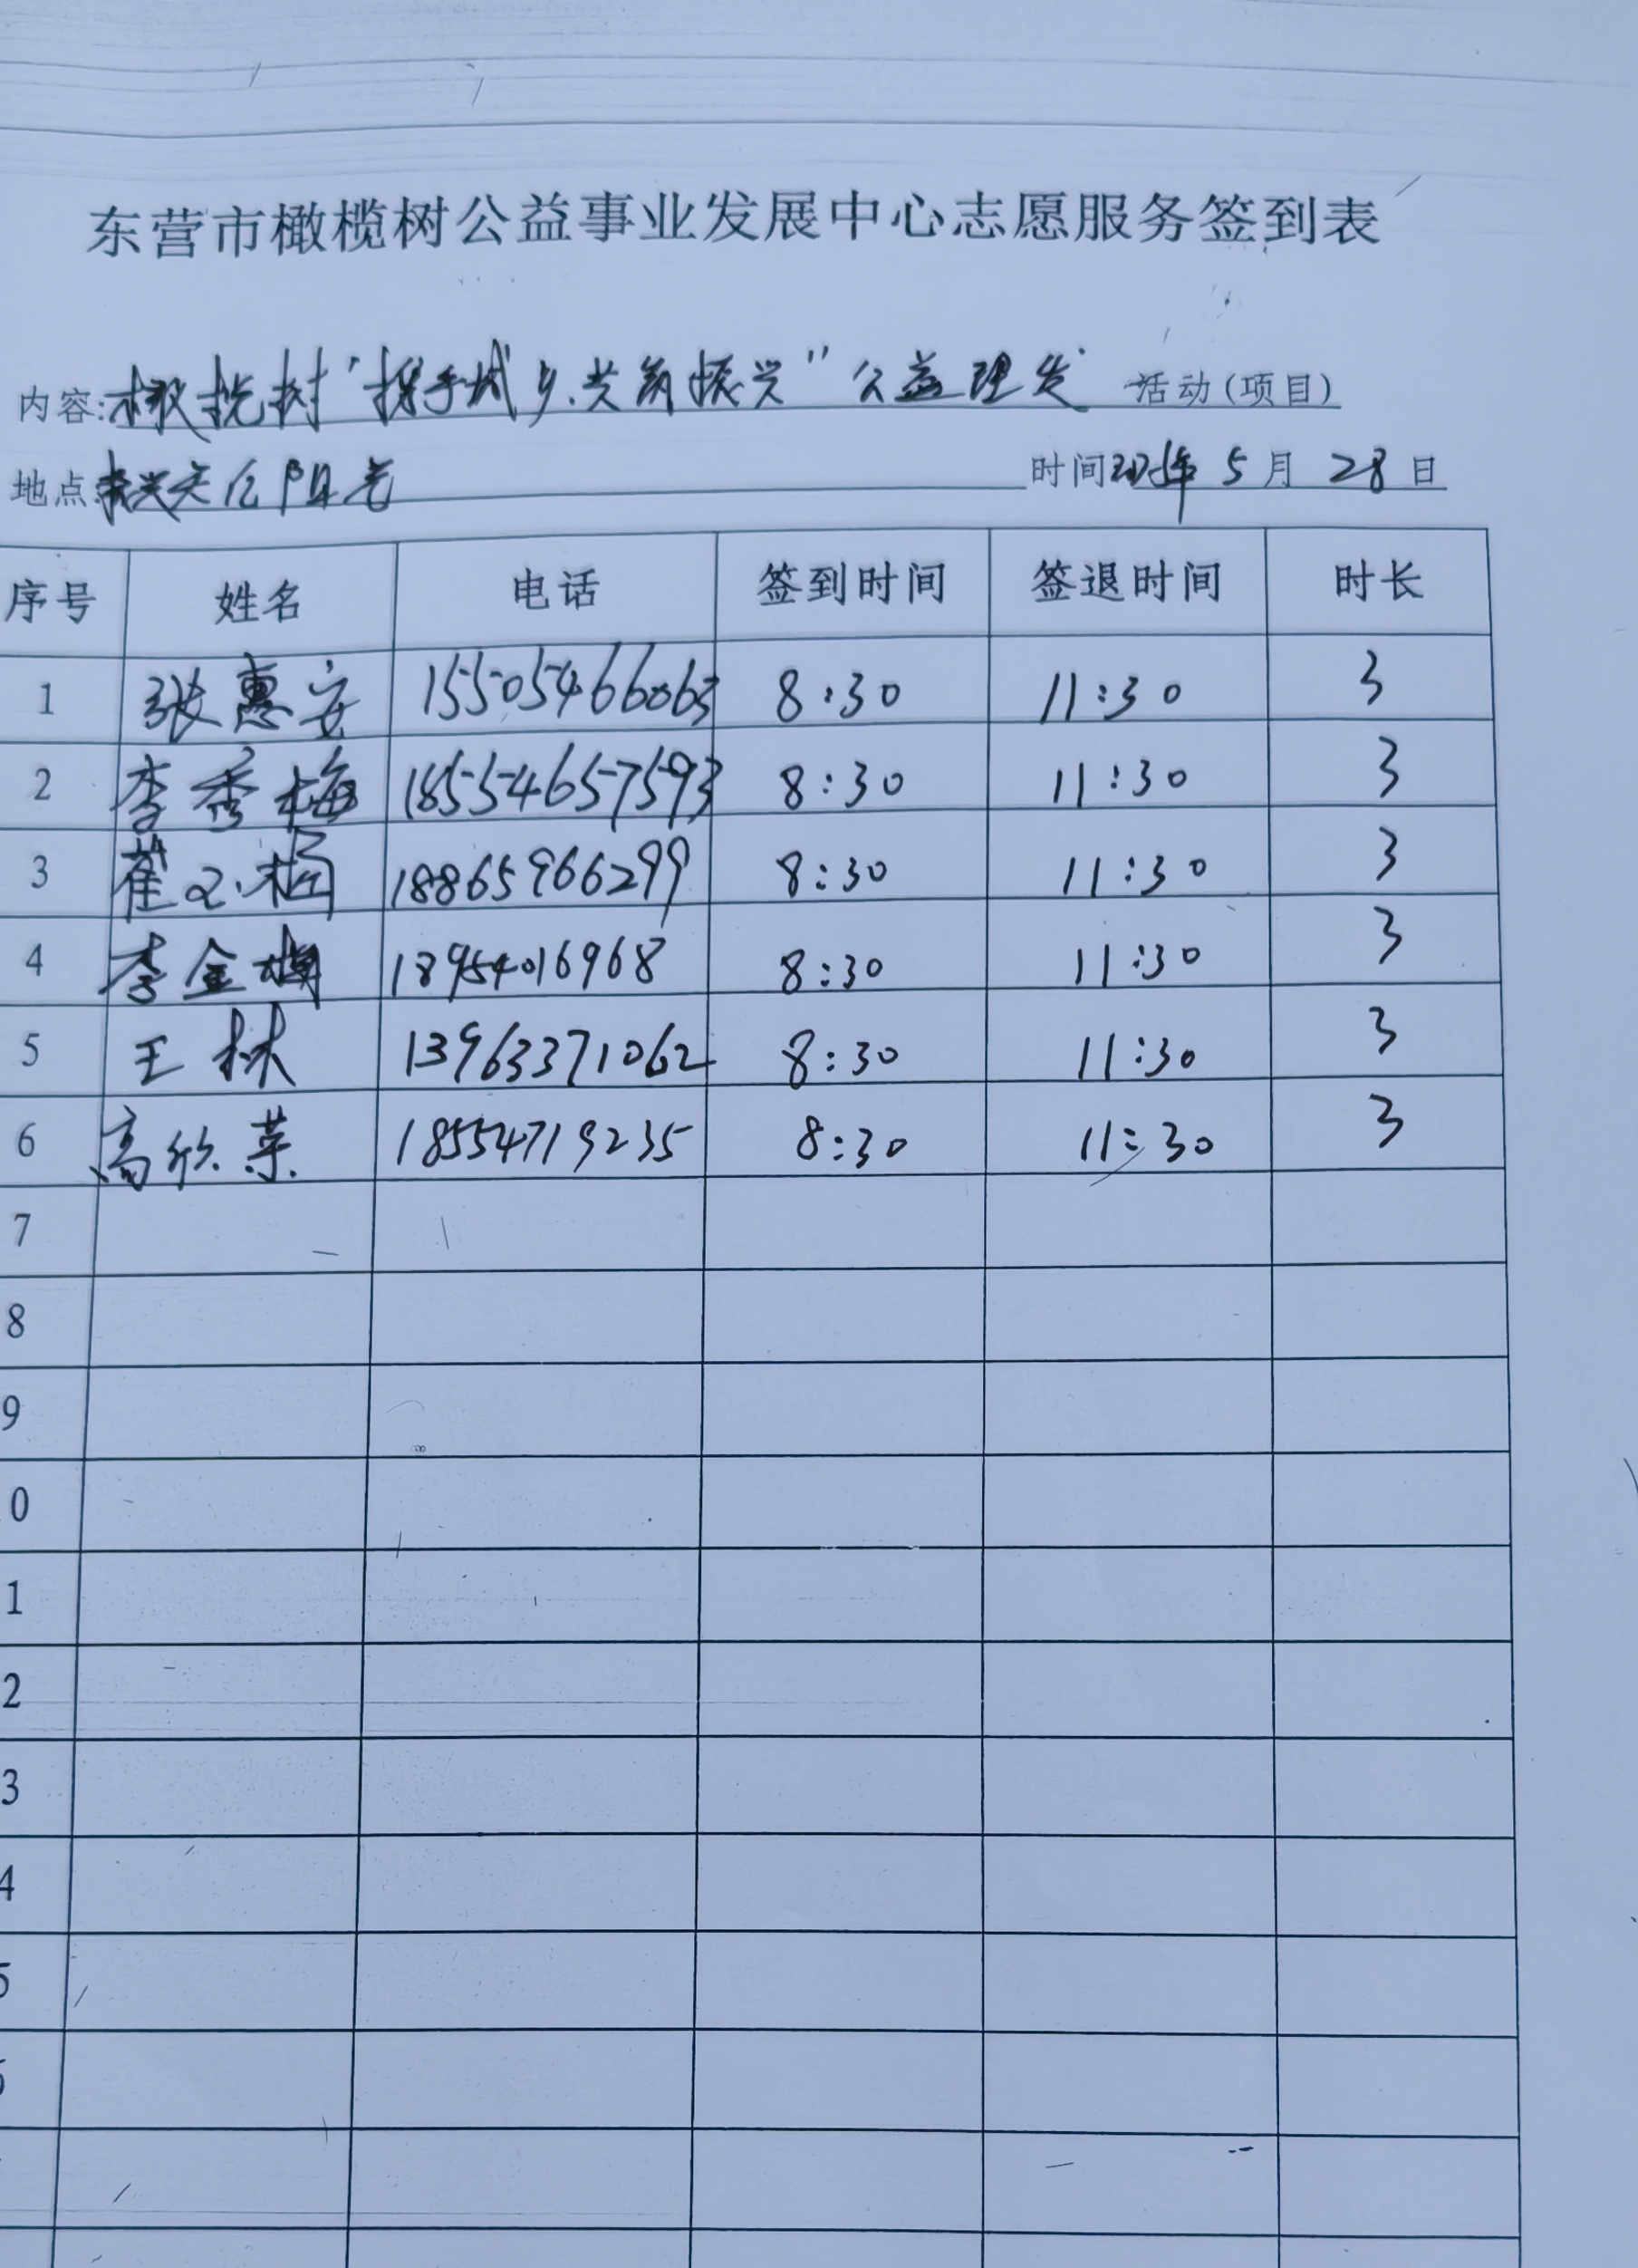 东营市橄榄树公益事业发展中心志愿服务签到表
内容:橄榄树"携手城乡.共筑振兴"公益理发 活动(项目)
地点:振兴天伦阳光 时间2025年 5 月 28 日
序号 姓名 电话 签到时间 签退时间 时长
1 张惠安 15505466063 8:30 11:30 3
2 李秀梅 18554657593 8:30 11:30 3
3 崔 18865966299 8:30 11:30 3
4 李金 18954016968 8:30 11:30 3
5 王林 13963371062 8:30 11:30 3
6 高欣荣 18554719235 8:30 11:30 3
7
8
9
0
1
2
3
4
5